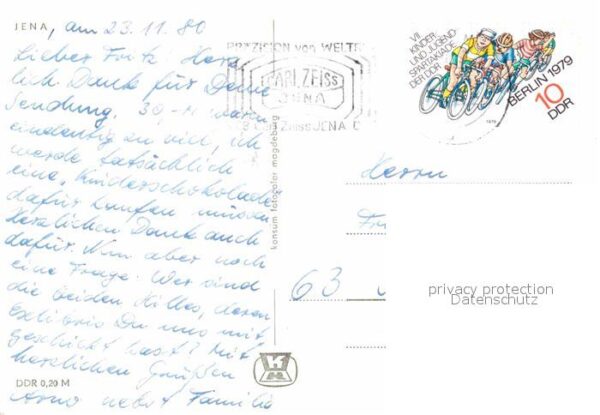 JENA, am 23.11.80
Lieber Fritz! Herz
lich Dank für Deine
Sendung. 30,- waren
eindeutig zu viel, ich
werde tatsächlich
eine "Kinderschokolade"
dafür kaufen müssen
Herzlichen Dank auch
dafür. Nun aber noch
eine Frage: Wer sind
die beiden Hilles, deren
Exlibris Du uns mit
geschickt hast? Mit
herzlichen Grüßen
Arno nebst Familie
DDR 0,20 M
konsum fotocolor magdeburg
PRÄZISION von WELTR
CARL ZEISS
JENA
ZEISS JENA
VII.
KINDER
UND JUGEND-
SPARTAKIADE
DER DDR
BERLIN 1979
10
DDR
1979
Herrn
Fri
63
privacy protection
Datenschutz